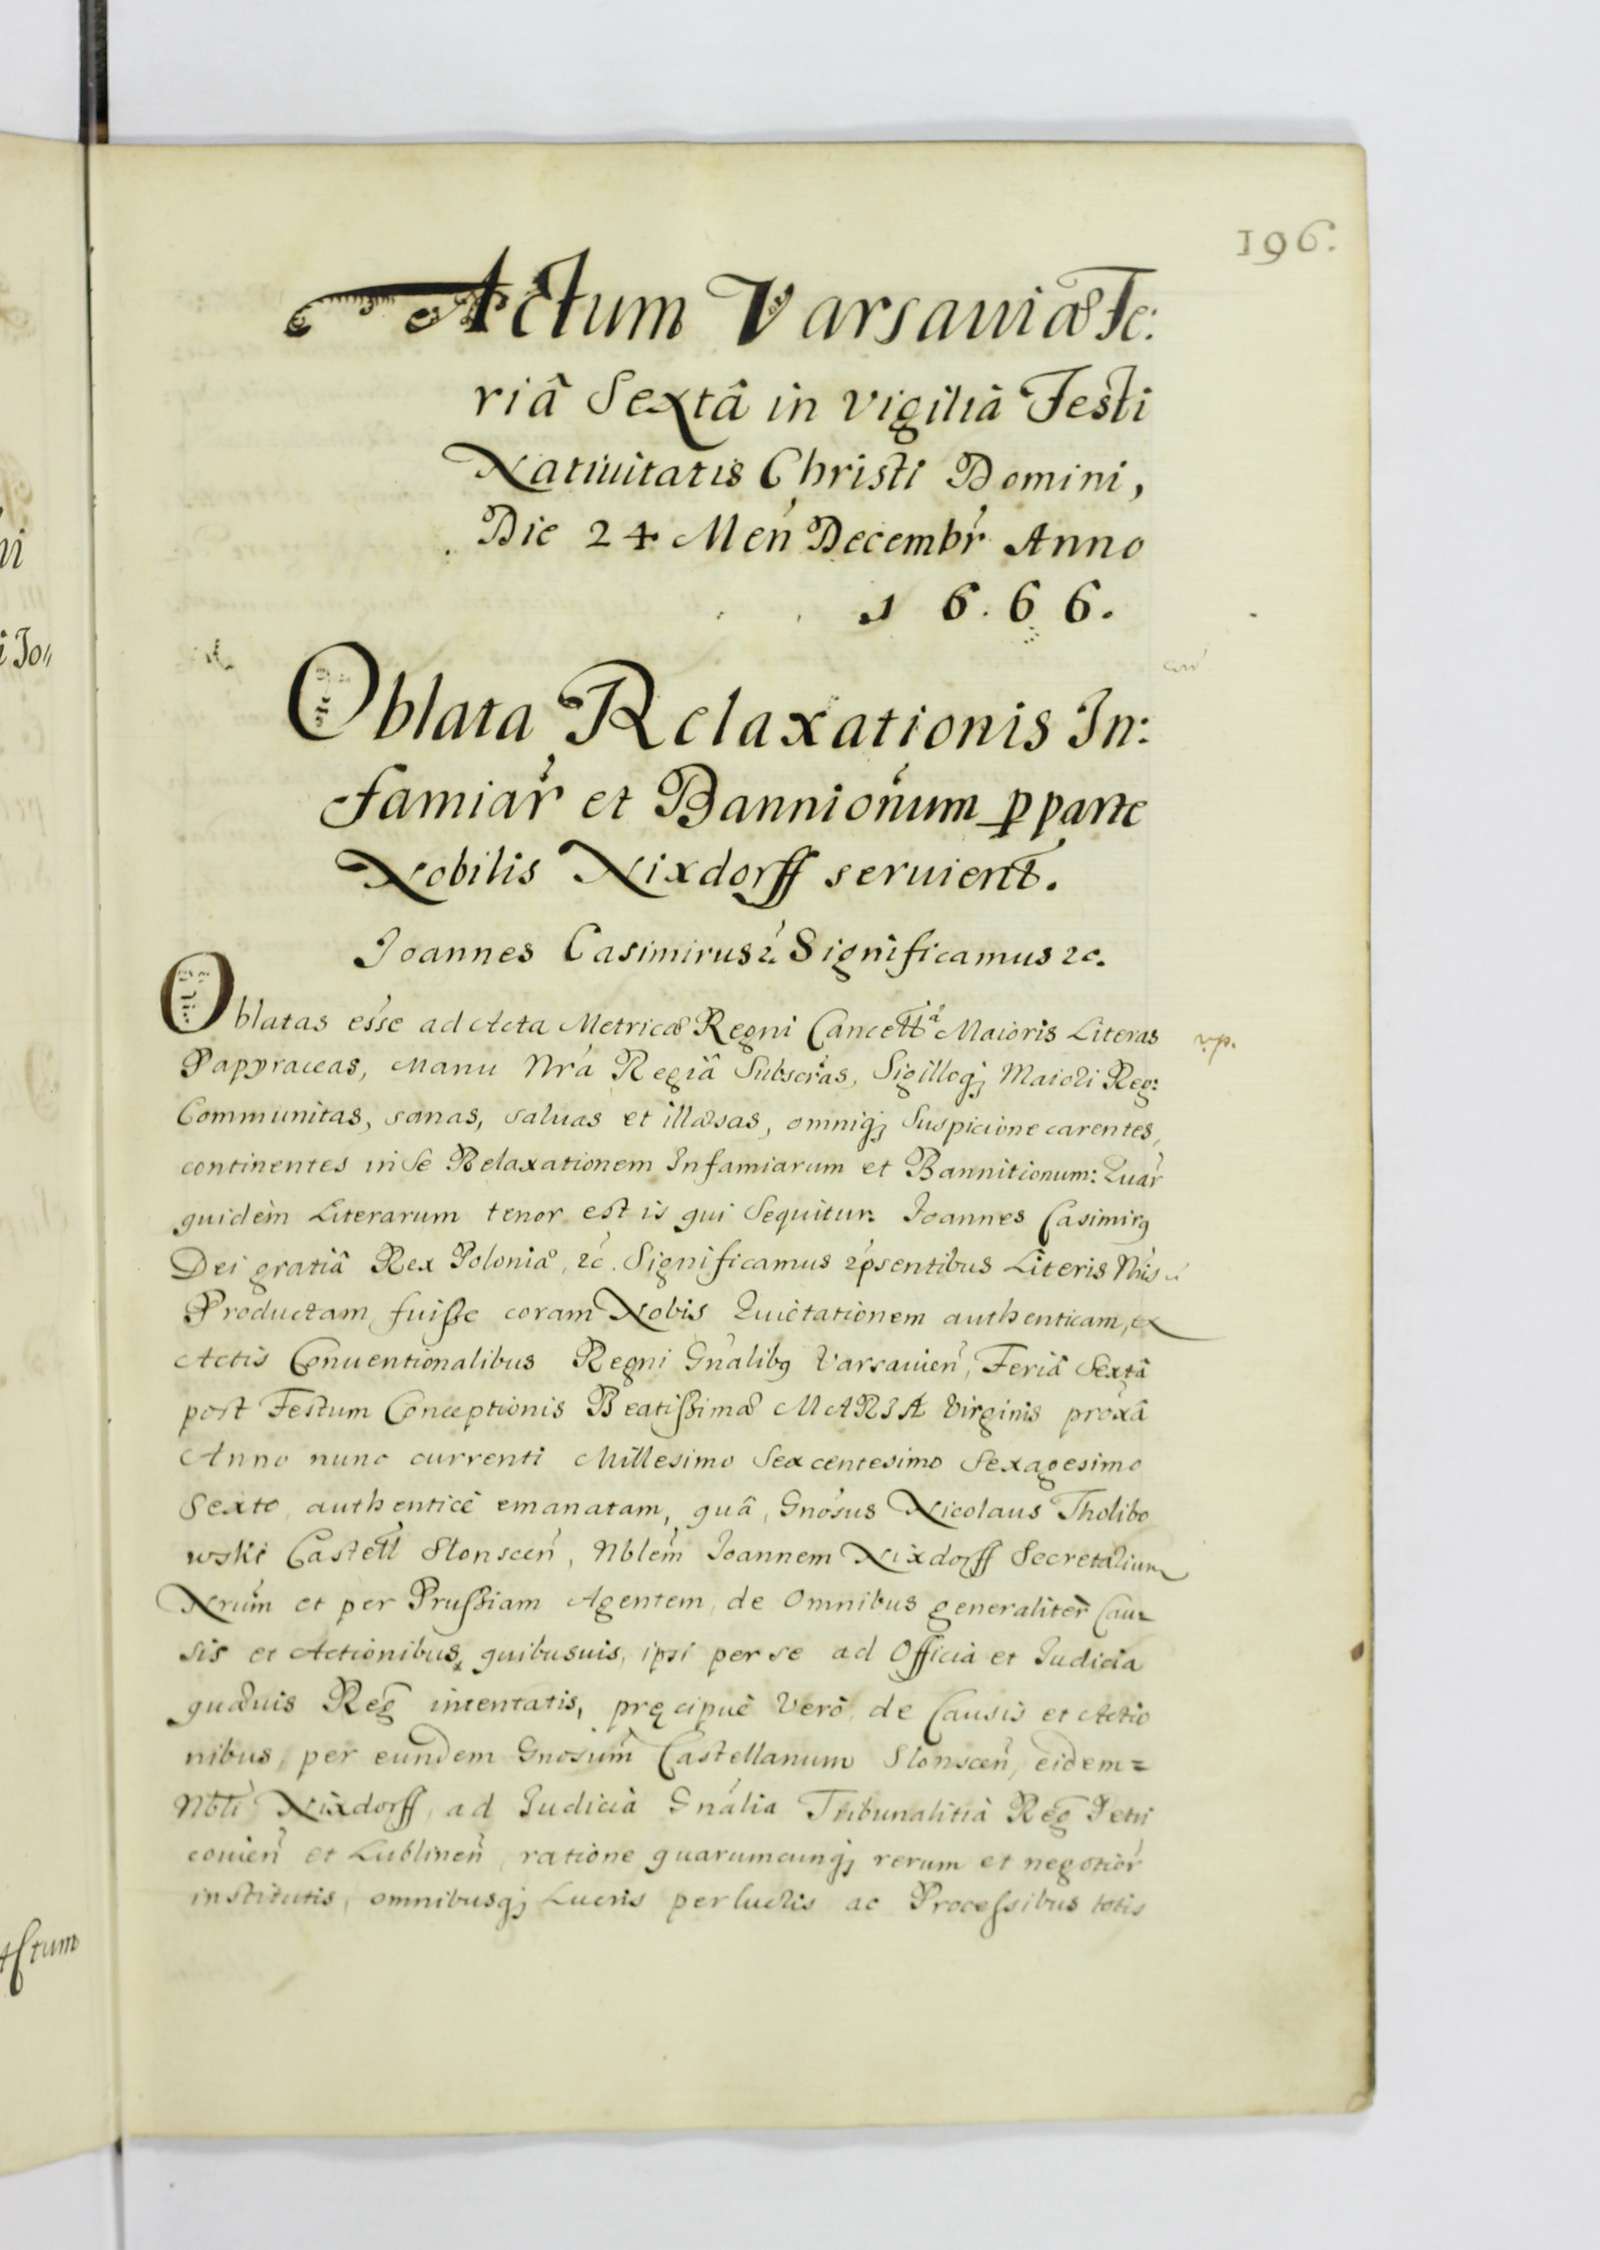 196.
Actum Varsaviæ Fe:
riâ Sextâ in vigiliâ Festi
Natiuitatis Christi Domini,
Die 24 Men̄ Decembr̄ Anno
1666.
Oblata Relaxationis In:
famiar̄ et Bannionum p parte
Nobilis Nixdorff seruient̄.
Joannes Casimirus ꝛc Significamus ꝛc.
Oblatas esse ad Acta Metricæ Regni Cancell̄ Maioris Literas
Papyraceas, Manu Nrā Regiâ Subscr̄as, Sigilloq; Maiori Reg:
Communitas, sanas, saluas et illæsas, omniq; Suspicione carentes,
continentes in Se Relaxationem Infamiarum et Bannitionum: Quar̄
quidem Literarum tenor est is qui Sequitur. Joannes Casimirꝰ
Dei gratiâ Rex Poloniæ, ꝛc. Significamus pn̄sentibus Literis Nr̄is
Productam fuisse coram Nobis Quietationem authenticam, ex
Actis Conuentionalibus Regni Gn̄alibꝰ Varsauien̄, Feriâ Sextâ
post Festum Conceptionis Beatissimæ MARIÆ Virginis proxâ
Anno nunc currenti Millesimo Sexcentesimo Sexagesimo
Sexto, authenticè emanatam, quâ, Gnōsus Nicolaus Tholibo
wski Castell̄ Slonscen̄, Nblēm Joannem Nixdorff Secretarium
Nrūm et per Prussiam Agentem, de Omnibus generaliter Cau-
sis et Actionibus, quibusuis, ipsi per se ad Officia et Judicia
quæuis Reg̅ intentatis, pręcipuè Verò, de Causis et Actio
nibus, per eundem Gnosūm Castellanum Slonscen̄, eidem=
Nbli Nixdorff, ad Judicia Gnālia Tribunalitia Reg̅ Petri
couien̄ et Lublinen̄, ratione quarumcunq; rerum et negotior̄
institutis, omnibusq; Lucris perlucris ac Processibus totis
Actum